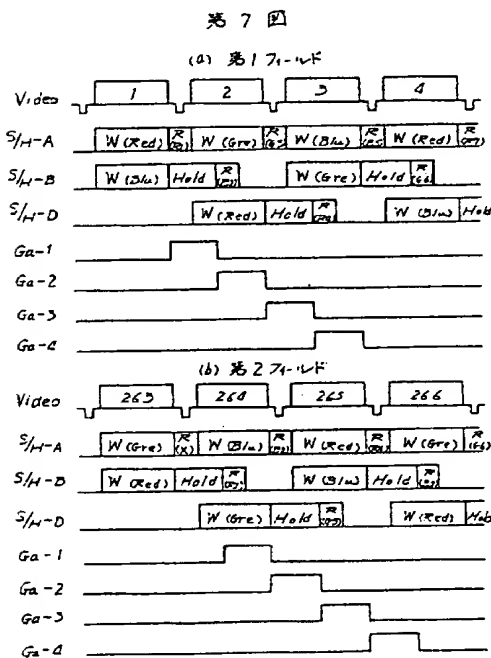 第 7 図
(a) 第1フィールド
Video 1 2 3 4
S/H-A W(Red) W(Gre) W(Blu) W(Red)
S/H-B W(Blu) Hold W(Gre) Hold
S/H-D W(Red) Hold W(Blu) Hold
Ga-1
Ga-2
Ga-3
Ga-4
(b) 第2フィールド
Video 263 264 265 266
S/H-A W(Gre) W(Blu) W(Red) W(Gre)
S/H-B W(Red) Hold W(Blu) Hold
S/H-D W(Gre) Hold W(Red) Hold
Ga-1
Ga-2
Ga-3
Ga-4